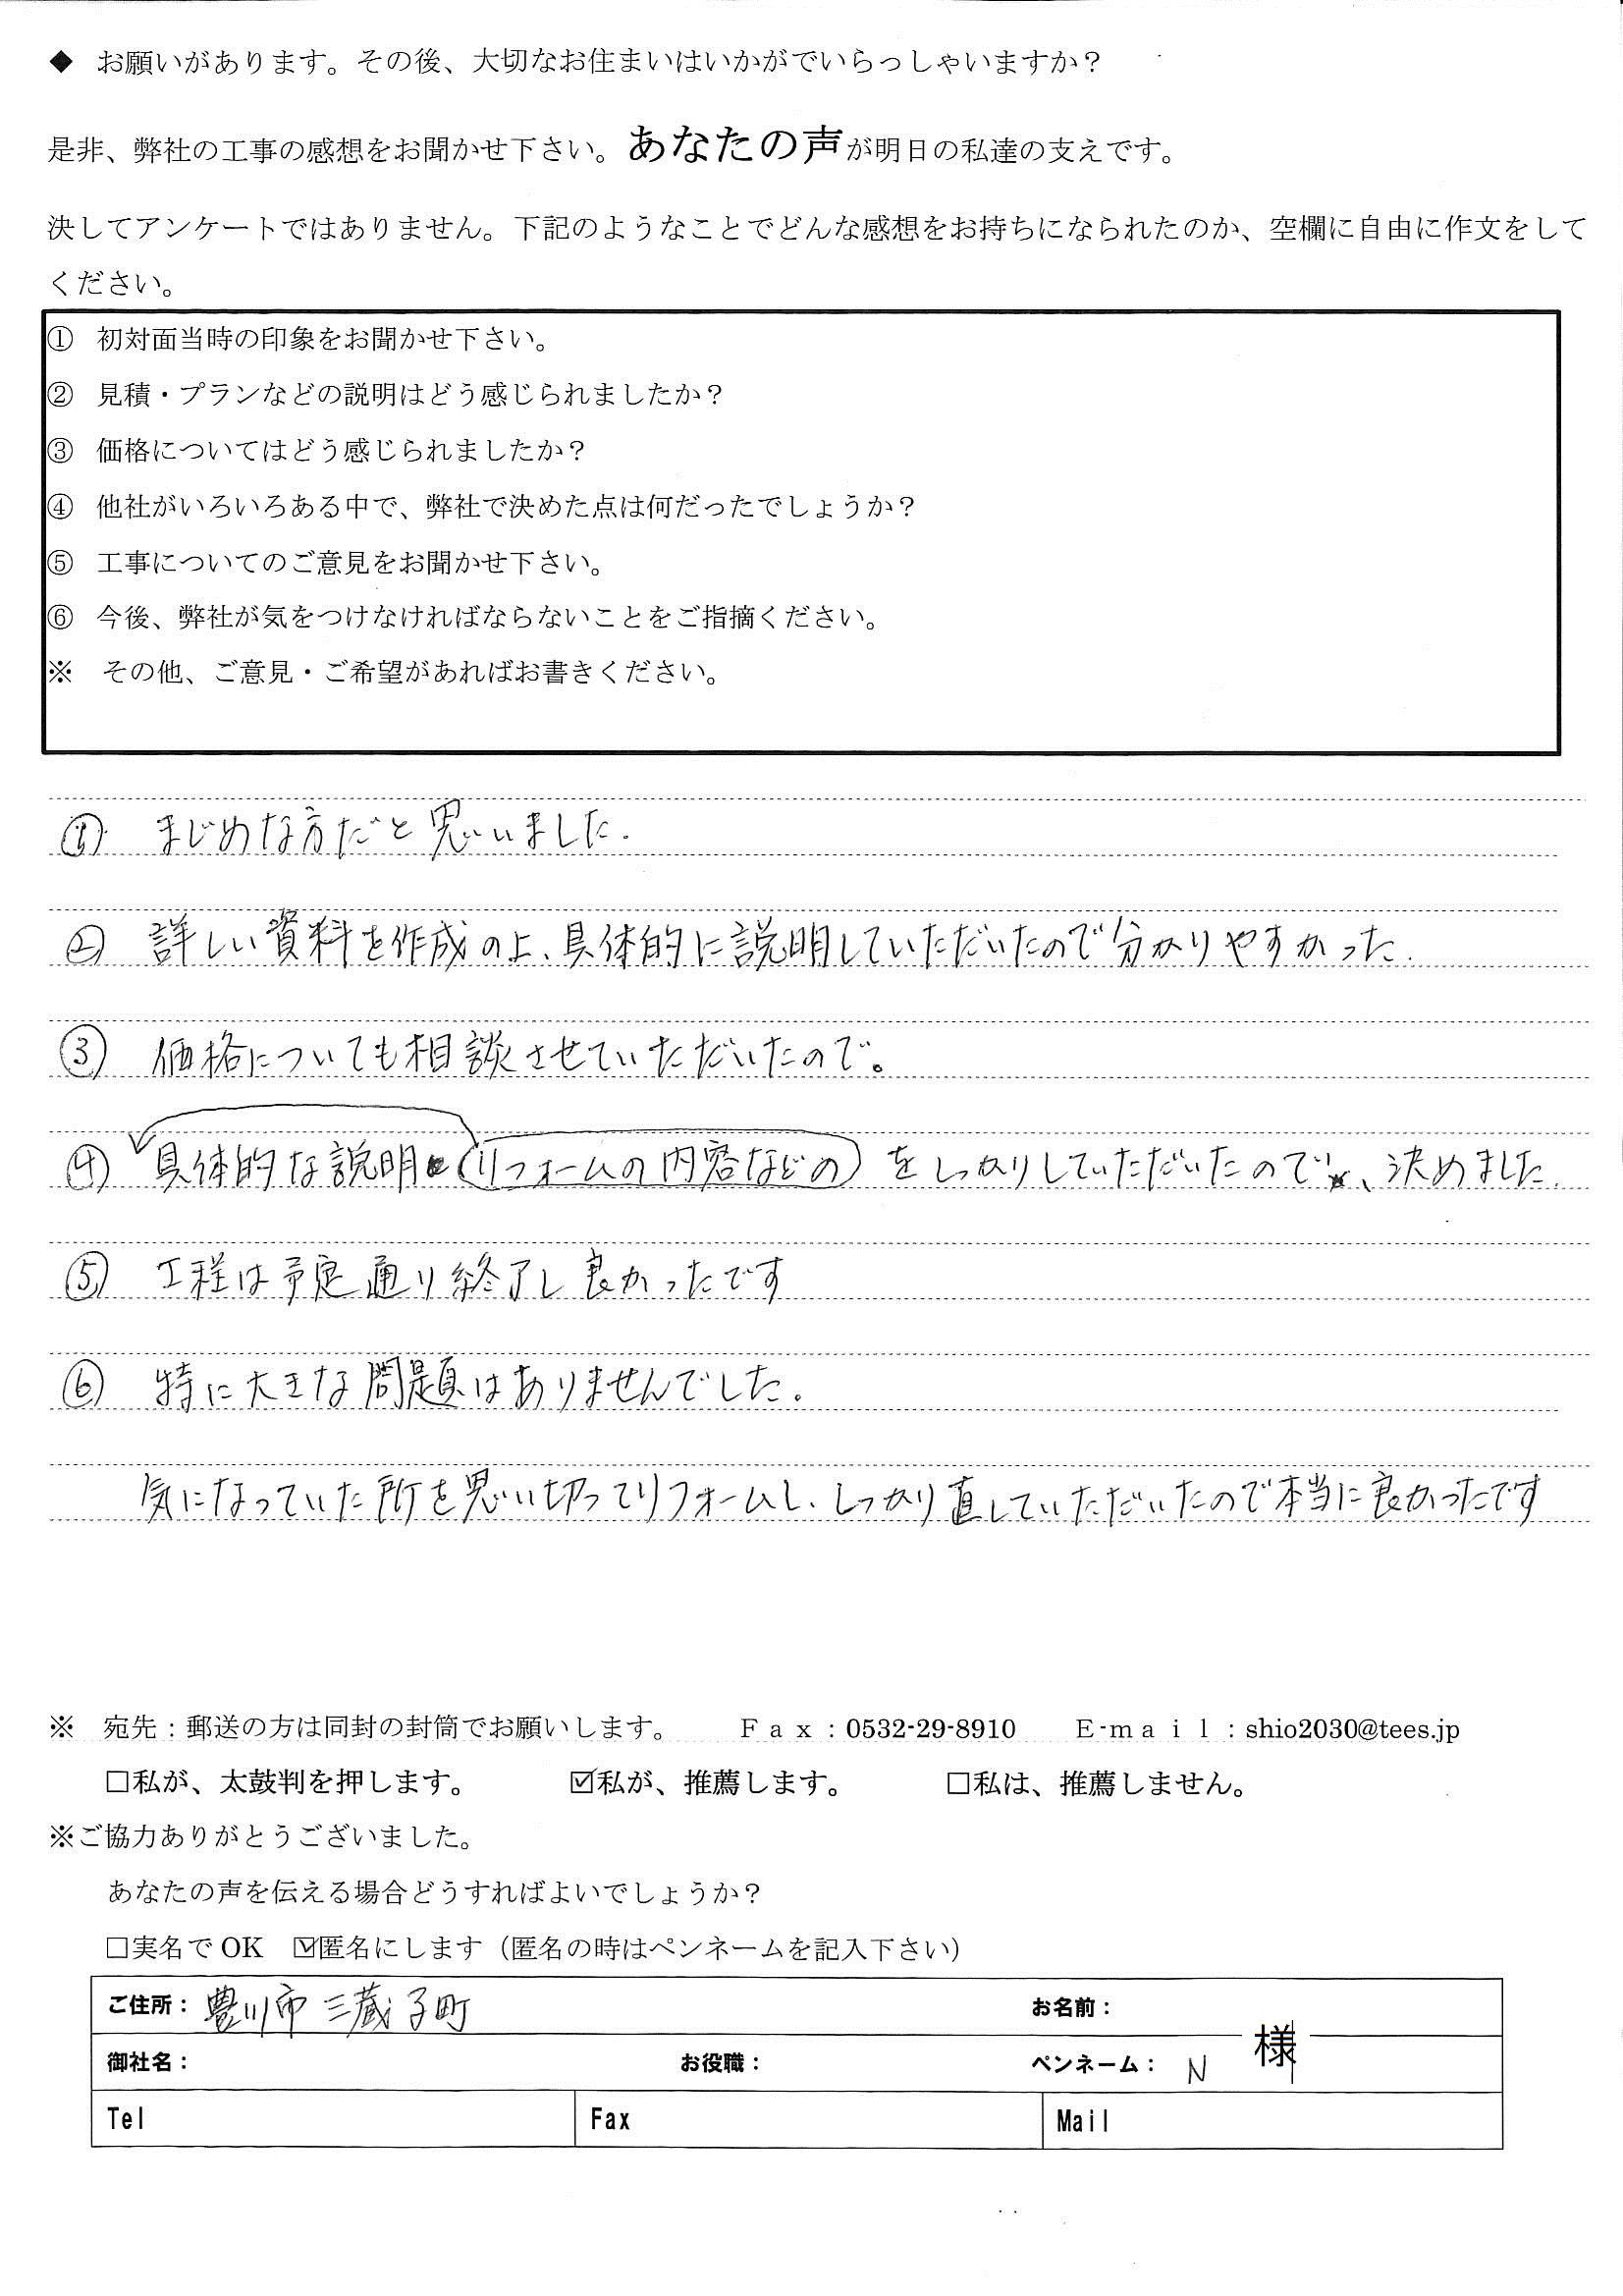 ◆ お願いがあります。その後、大切なお住まいはいかがでいらっしゃいますか？
是非、弊社の工事の感想をお聞かせ下さい。あなたの声が明日の私達の支えです。
決してアンケートではありません。下記のようなことでどんな感想をお持ちになられたのか、空欄に自由に作文をして
ください。
① 初対面当時の印象をお聞かせ下さい。
② 見積・プランなどの説明はどう感じられましたか？
③ 価格についてはどう感じられましたか？
④ 他社がいろいろある中で、弊社で決めた点は何だったでしょうか？
⑤ 工事についてのご意見をお聞かせ下さい。
⑥ 今後、弊社が気をつけなければならないことをご指摘ください。
※ その他、ご意見・ご希望があればお書きください。
① まじめな方だと思いました.
② 詳しい資料を作成の上、具体的に説明していただいたので分かりやすかった.
③ 価格についても相談させていただいたので。
④ 具体的な説明 リフォームの内容などの をしっかりしていただいたので、決めました.
⑤ 工程は予定通り終了し良かったです
⑥ 特に大きな問題はありませんでした.
気になっていた所を思い切ってリフォームし、しっかり直していただいたので本当に良かったです
※ 宛先：郵送の方は同封の封筒でお願いします。 Ｆａｘ：0532-29-8910 Ｅ-ｍａｉｌ：shio2030@tees.jp
□私が、太鼓判を押します。 ☑私が、推薦します。 □私は、推薦しません。
※ご協力ありがとうございました。
あなたの声を伝える場合どうすればよいでしょうか？
□実名で OK ☑匿名にします（匿名の時はペンネームを記入下さい）
ご住所： 豊川市三蔵子町 お名前：
様
御社名： お役職： ペンネーム： N
Tel Fax Mail